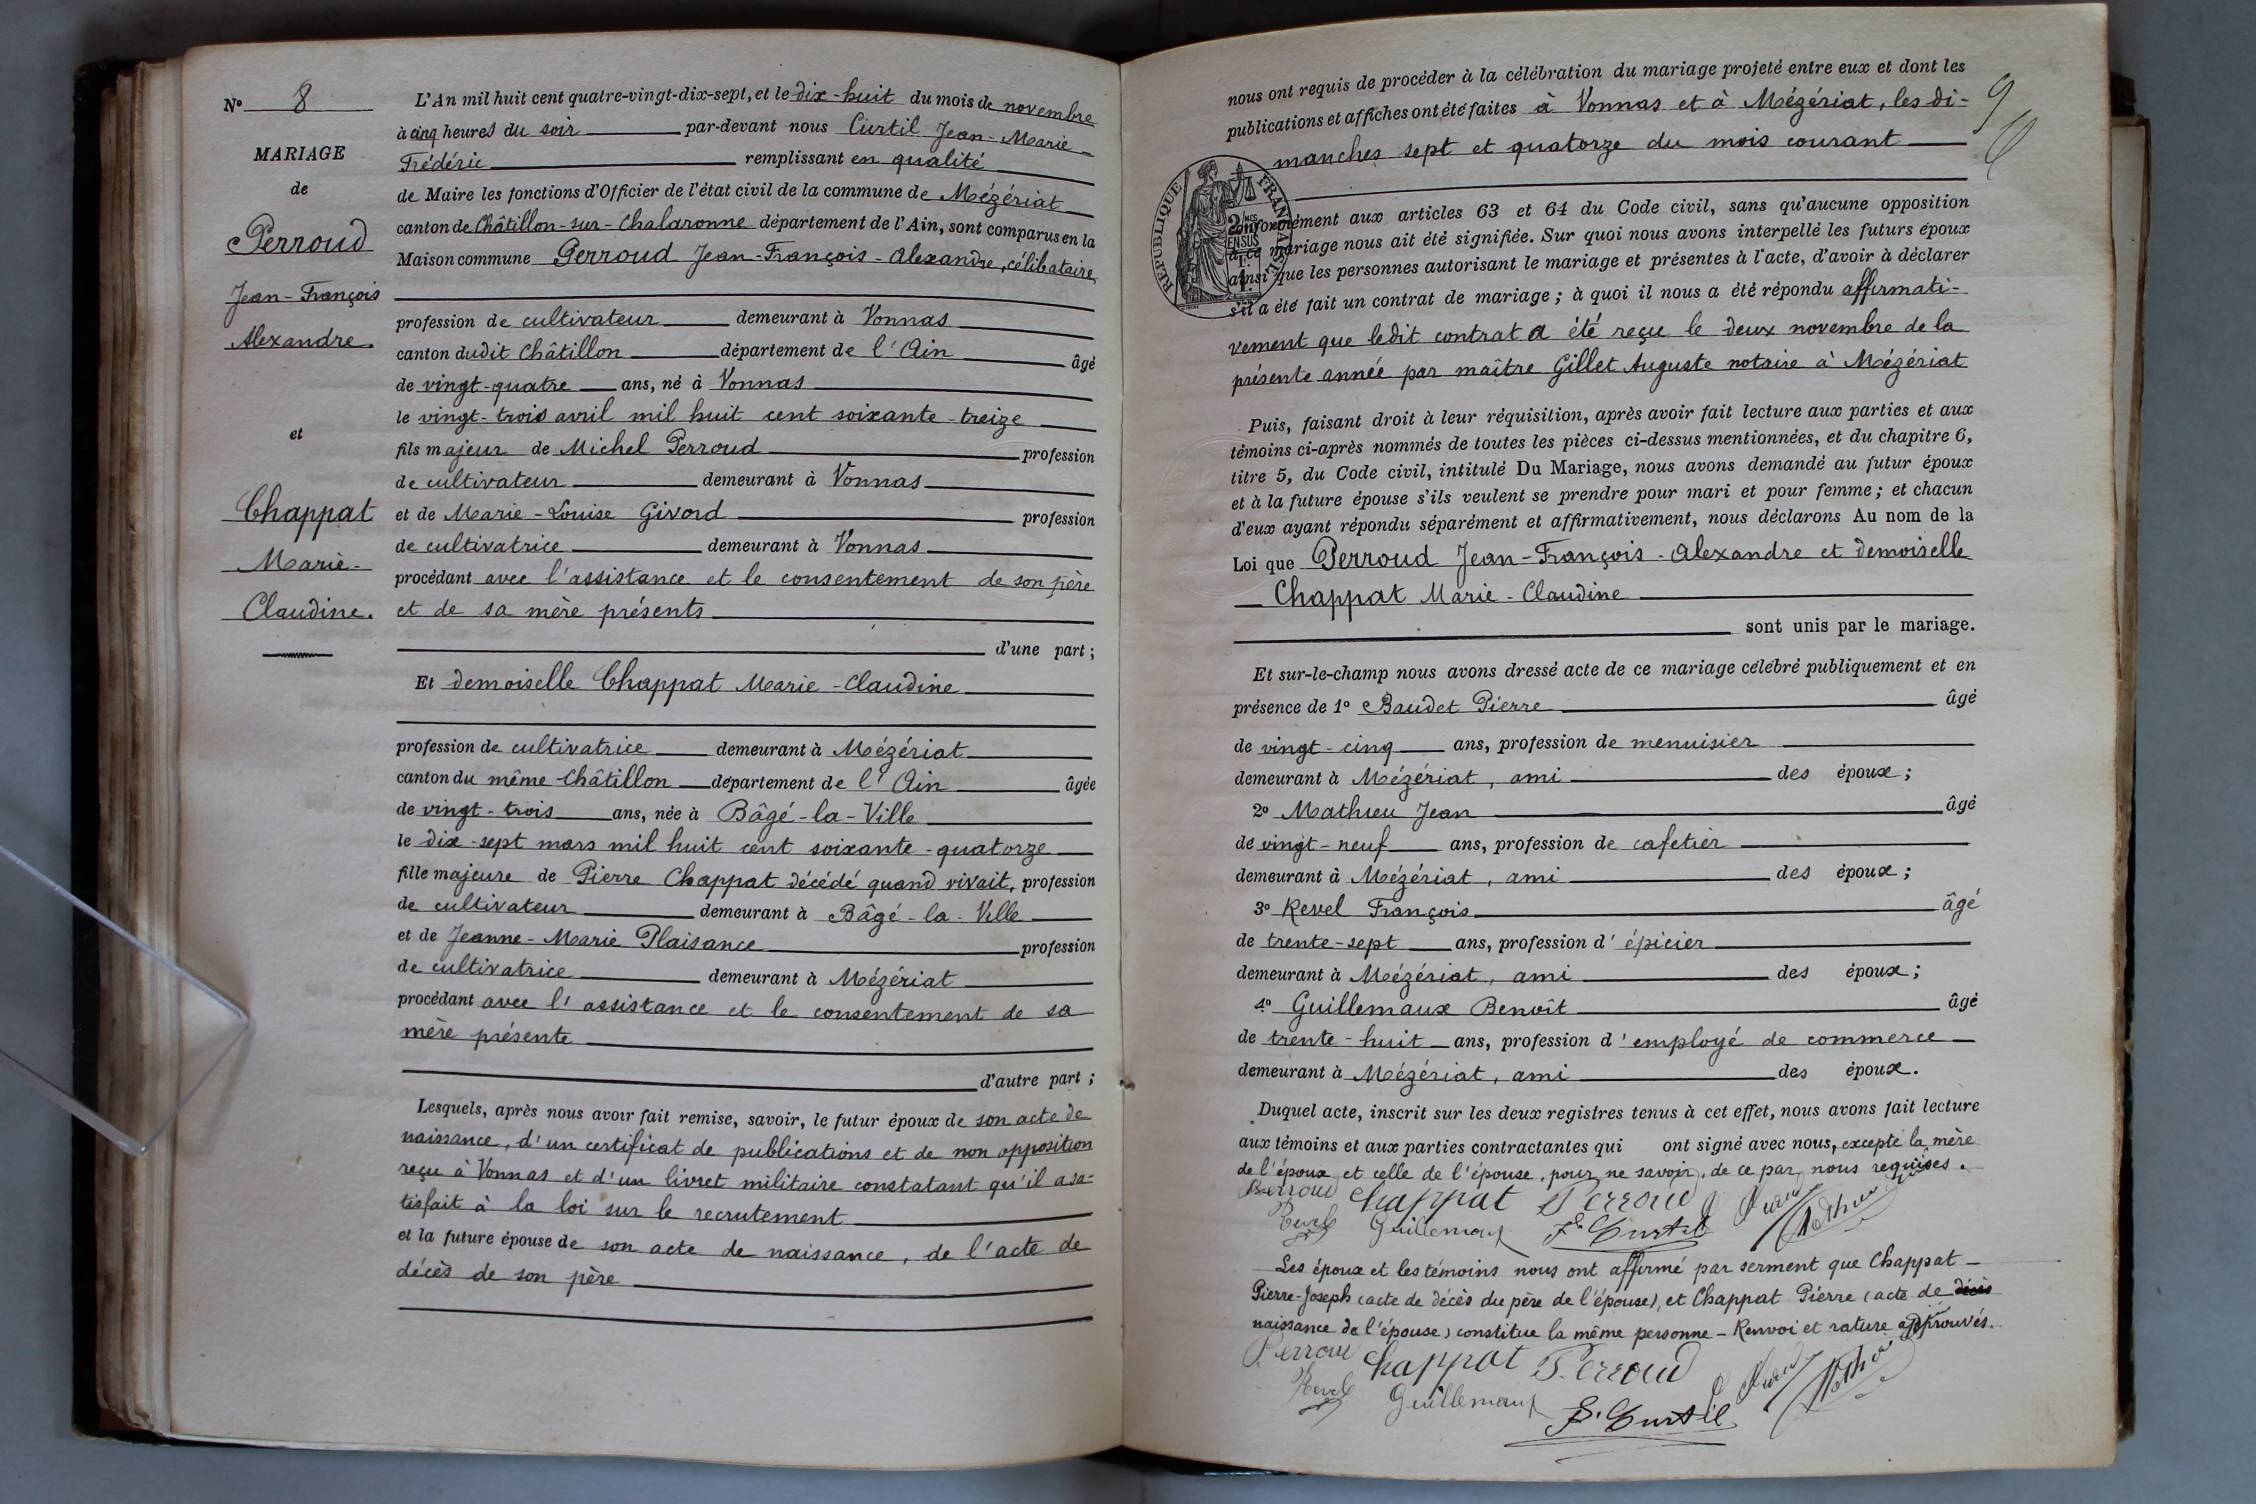 N° 8
MARIAGE
de
Perroud
Jean-François
Alexandre.
et
Chappat
Marie-
Claudine.
L'An mil huit cent quatre-vingt-dix-sept, et le dix-huit du mois de novembre
à cinq heures du soir par-devant nous Curtil Jean-Marie
Frédéric remplissant en qualité
de Maire les fonctions d'Officier de l'état civil de la commune de Mézériat
canton de Châtillon-sur-Chalaronne département de l'Ain, sont comparus en la
Maison commune Perroud Jean-François-Alexandre, célibataire,
profession de cultivateur demeurant à Vonnas
canton dudit Châtillon département de l'Ain âgé
de vingt-quatre ans, né à Vonnas
le vingt-trois avril mil huit cent soixante-treize
fils majeur de Michel Perroud profession
de cultivateur demeurant à Vonnas
et de Marie-Louise Givord profession
de cultivatrice demeurant à Vonnas
procédant avec l'assistance et le consentement de son père
et de sa mère présents
d'une part;
Et demoiselle Chappat Marie-Claudine
profession de cultivatrice demeurant à Mézériat
canton du même Châtillon département de l'Ain âgée
de vingt-trois ans, née à Bâgé-la-Ville
le dix-sept mars mil huit cent soixante-quatorze
fille majeure de Pierre Chappat décédé quand vivait, profession
de cultivateur demeurant à Bâgé-la-Ville
et de Jeanne-Marie Plaisance profession
de cultivatrice demeurant à Mézériat
procédant avec l'assistance et le consentement de sa
mère présente
d'autre part;
Lesquels, après nous avoir fait remise, savoir, le futur époux de son acte de
naissance, d'un certificat de publications et de non opposition
reçu à Vonnas et d'un livret militaire constatant qu'il a sa-
tisfait à la loi sur le recrutement
et la future épouse de son acte de naissance, de l'acte de
décès de son père
nous ont requis de procéder à la célébration du mariage projeté entre eux et dont les
publications et affiches ont été faites à Vonnas et à Mézériat, les di-
manches sept et quatorze du mois courant
9
RÉPUBLIQUE FRANÇAISE
conformément aux articles 63 et 64 du Code civil, sans qu'aucune opposition
à ce mariage nous ait été signifiée. Sur quoi nous avons interpellé les futurs époux
ainsi que les personnes autorisant le mariage et présentes à l'acte, d'avoir à déclarer
s'il a été fait un contrat de mariage; à quoi il nous a été répondu affirmati-
vement que ledit contrat a été reçu le deux novembre de la
présente année par maître Gillet Auguste notaire à Mézériat
Puis, faisant droit à leur réquisition, après avoir fait lecture aux parties et aux
témoins ci-après nommés de toutes les pièces ci-dessus mentionnées, et du chapitre 6,
titre 5, du Code civil, intitulé Du Mariage, nous avons demandé au futur époux
et à la future épouse s'ils veulent se prendre pour mari et pour femme; et chacun
d'eux ayant répondu séparément et affirmativement, nous déclarons Au nom de la
Loi que Perroud Jean-François-Alexandre et demoiselle
Chappat Marie-Claudine
sont unis par le mariage.
Et sur-le-champ nous avons dressé acte de ce mariage célébré publiquement et en
présence de 1° Baudet Pierre âgé
de vingt-cinq ans, profession de menuisier
demeurant à Mézériat, ami des époux;
2° Mathieu Jean âgé
de vingt-neuf ans, profession de cafetier
demeurant à Mézériat, ami des époux;
3° Revel François âgé
de trente-sept ans, profession d'épicier
demeurant à Mézériat, ami des époux;
4° Guillemaux Benoît âgé
de trente-huit ans, profession d'employé de commerce
demeurant à Mézériat, ami des époux.
Duquel acte, inscrit sur les deux registres tenus à cet effet, nous avons fait lecture
aux témoins et aux parties contractantes qui ont signé avec nous, excepté la mère
de l'époux et celle de l'épouse, pour ne savoir, de ce par nous requises.
Perroud Chappat Perroud
Revel Guillemaux F. Curtil Mathieu
Les époux et les témoins nous ont affirmé par serment que Chappat
Pierre-Joseph (acte de décès du père de l'épouse), et Chappat Pierre (acte de décès
naissance de l'épouse) constitue la même personne – Renvoi et rature approuvés.
Perroud Chappat P. Perroud
Revel Guillemaux F. Curtil Mathieu